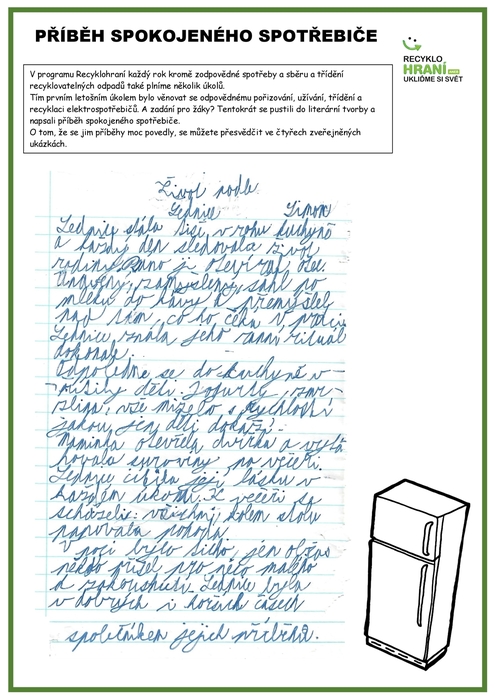 PŘÍBĚH SPOKOJENÉHO SPOTŘEBIČE
RECYKLO
HRANÍ
UKLIĎME SI SVĚT
V programu Recyklohraní každý rok kromě zodpovědné spotřeby a sběru a třídění
recyklovatelných odpadů také plníme několik úkolů.
Tím prvním letošním úkolem bylo věnovat se odpovědnému pořizování, užívání, třídění a
recyklaci elektrospotřebičů. A zadání pro žáky? Tentokrát se pustili do literární tvorby a
napsali příběh spokojeného spotřebiče.
O tom, že se jim příběhy moc povedly, se můžete přesvědčit ve čtyřech zveřejněných
ukázkách.
Život podle
Lednice Simon
Lednice stála tiše v rohu kuchyně
a každý den sledovala život
rodiny. Ráno ji otevíral otec.
Unavený, zamyšlený, sáhl po
mléku do kávy a přemýšlel
nad tím, co ho čeká v práci.
Lednice znala jeho ranní rituál
dokonale.
Odpoledne se do kuchyně v-
řítily děti. Jogurty, zmr-
zlina, vše mizelo s rychlostí
jakou jen děti dokáží.
Maminka otevřela dvířka a vyta
hovala suroviny na večeři.
Lednice cítila její lásku v
každém úkonu. K večeři se
scházeli všichni kolem stolu
panovala pohoda.
V noci bylo ticho, jen občas
někdo přišel pro něco malého
k zakousnutí. Lednice byla
v dobrých i horších časech
společníkem jejich příběhů.